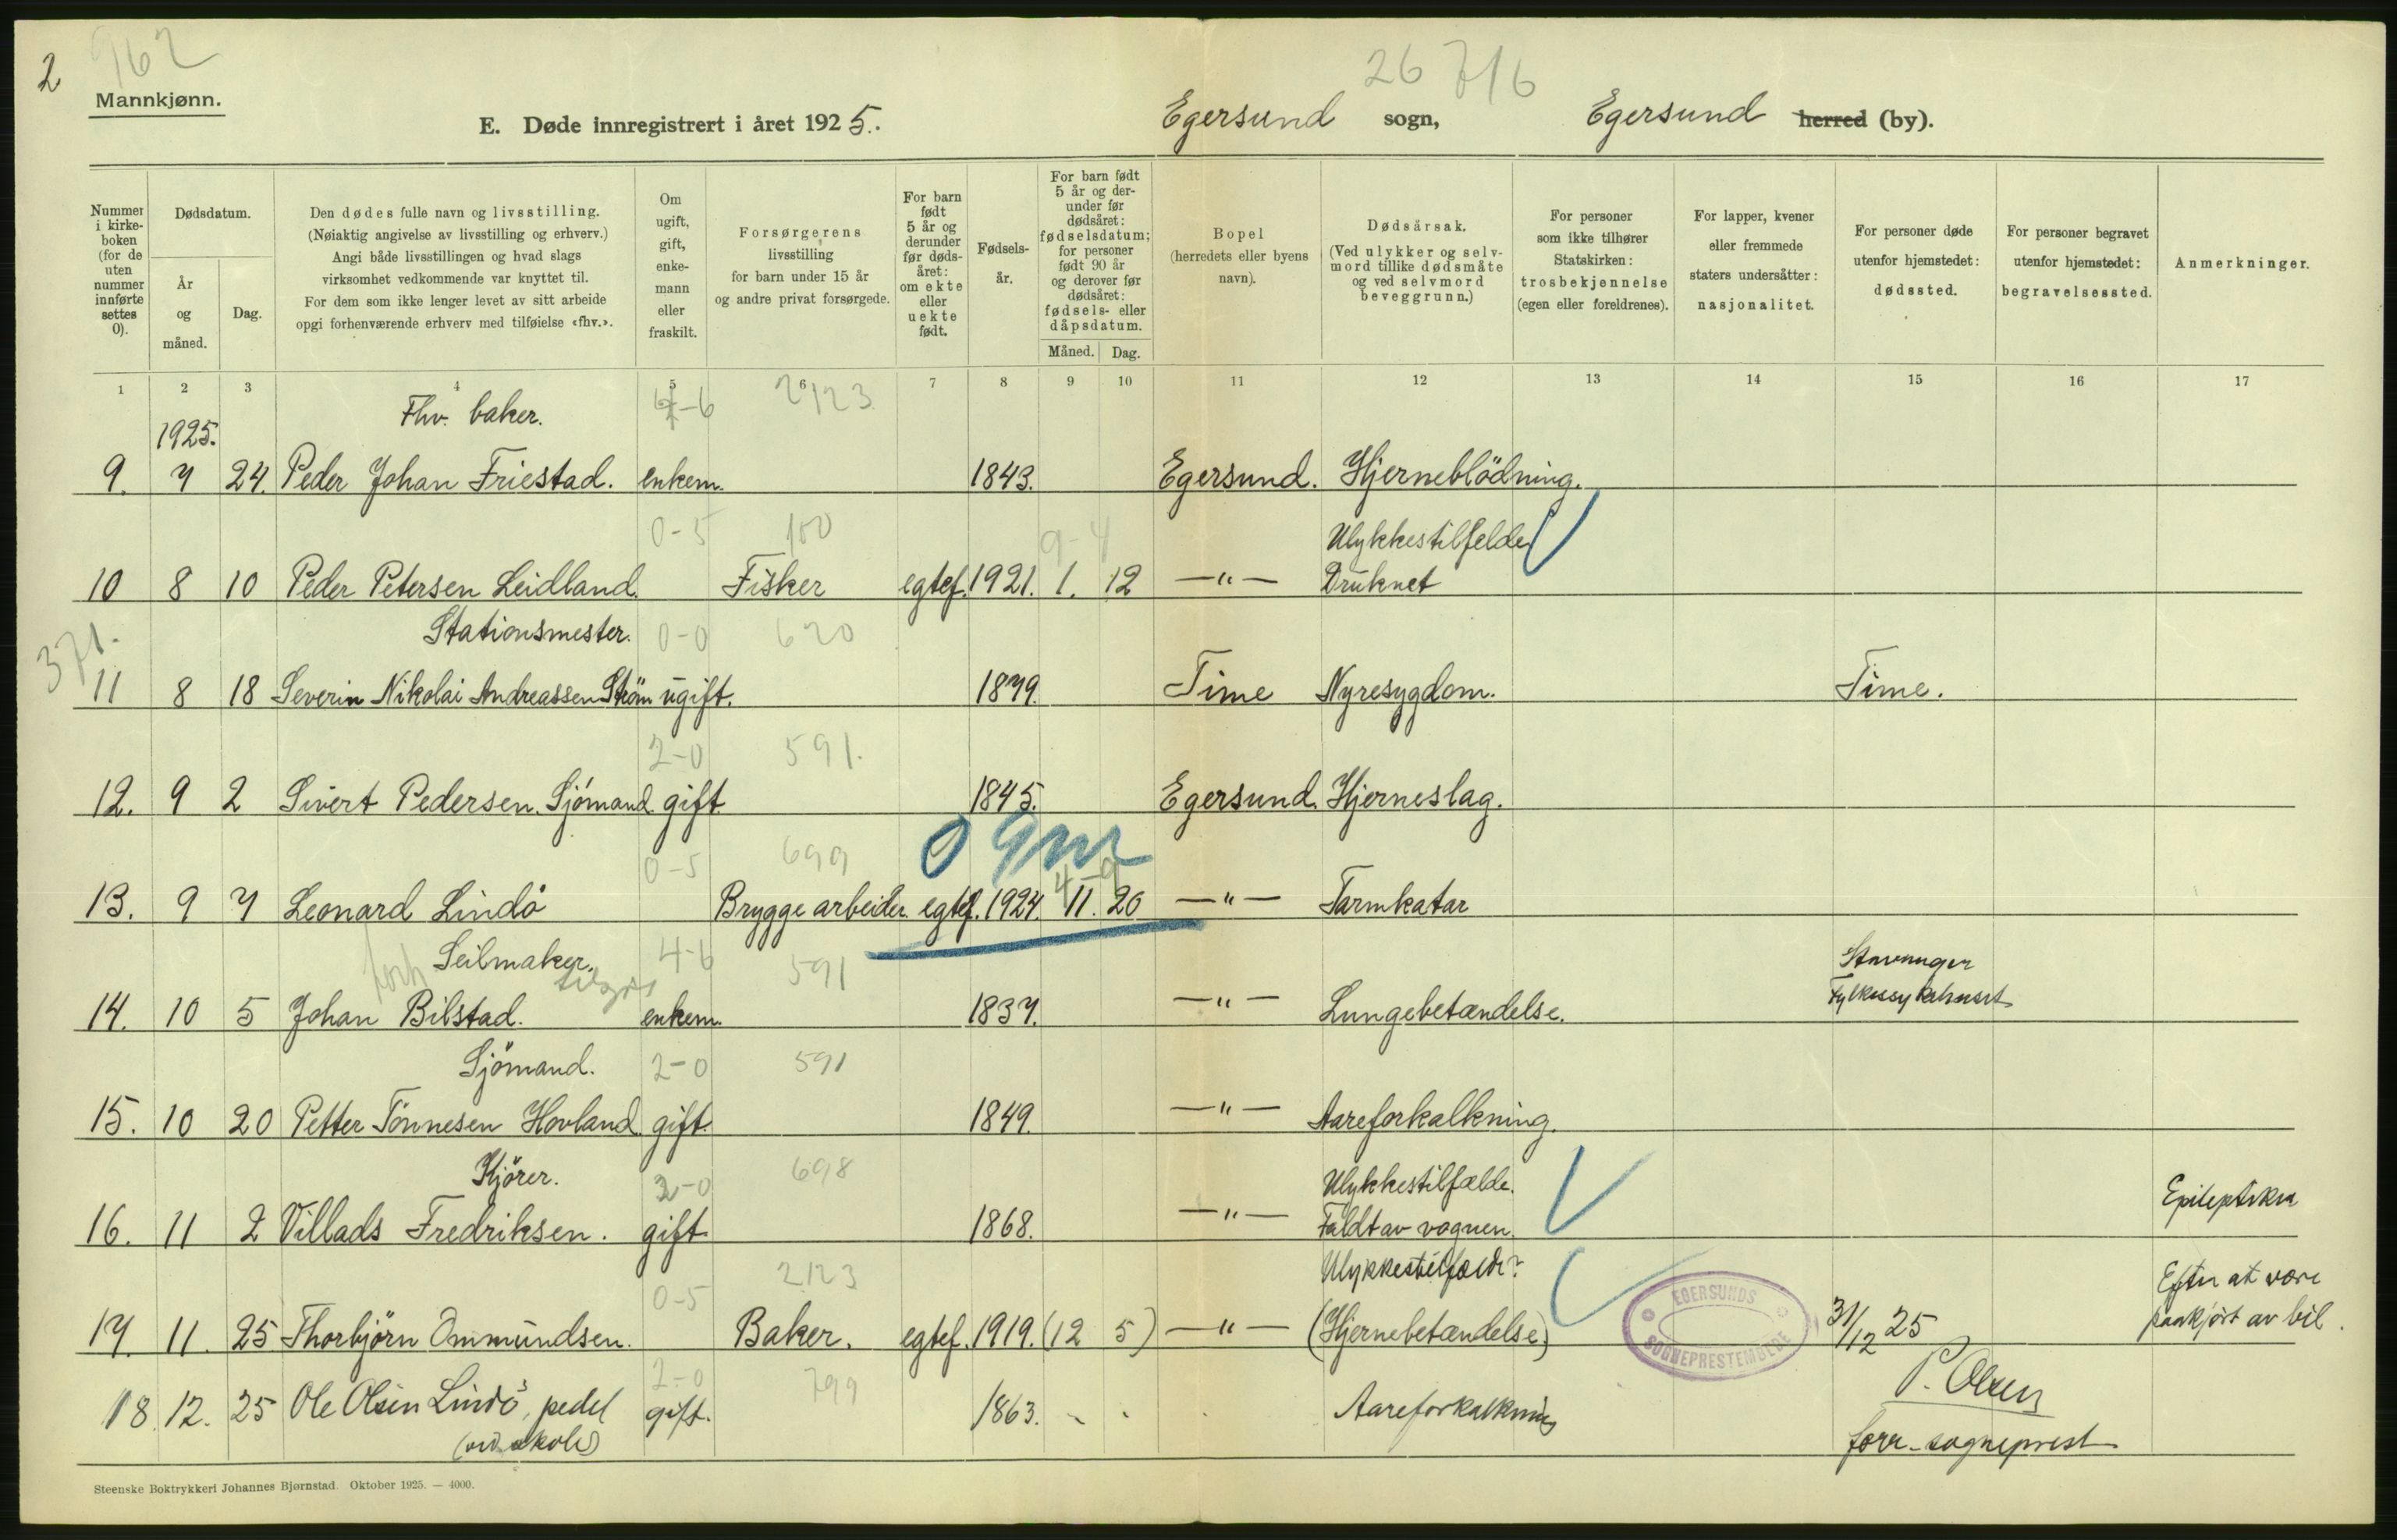 2 962
Mannkjønn.
26 716
E. Døde innregistrert i året 1925. Egersund sogn, Egersund herred (by).
Nummer i kirkeboken (for de uten nummer innførte settes 0).
Dødsdatum.
År og måned.
Dag.
Den dødes fulle navn og livsstilling.
(Nøiaktig angivelse av livsstilling og erhverv.)
Angi både livsstillingen og hvad slags
virksomhet vedkommende var knyttet til.
For dem som ikke lenger levet av sitt arbeide
opgi forhenværende erhverv med tilføielse «fhv.».
Om ugift, gift, enkemann eller fraskilt.
Forsørgerens
livsstilling
for barn under 15 år
og andre privat forsørgede.
For barn født 5 år og derunder før dødsåret: om ekte eller uekte født.
Fødselsår.
For barn født 5 år og derunder før dødsåret: fødselsdatum; for personer født 90 år og derover før dødsåret: fødsels- eller dåpsdatum.
Måned. Dag.
Bopel
(herredets eller byens
navn).
Dødsårsak.
(Ved ulykker og selvmord tillike dødsmåte og ved selvmord beveggrunn.)
For personer
som ikke tilhører
Statskirken:
trosbekjennelse
(egen eller foreldrenes).
For lapper, kvener
eller fremmede
staters undersåtter:
nasjonalitet.
For personer døde
utenfor hjemstedet:
dødssted.
For personer begravet
utenfor hjemstedet:
begravelsessted.
Anmerkninger.
1 2 3 4 5 6 7 8 9 10 11 12 13 14 15 16 17
Fhv. baker. -6 2123
1925.
9. 7 24. Peder Johan Friestad. enkem. 1843. Egersund. Hjerneblödning.
0-5 100 9-4 Ulykkestilfelde
10 8 10 Peder Petersen Leidland. Fisker egtef. 1921. 1. 12 —"— Druknet
371. Stationsmester. 0-0 620
11 8 18 Severin Nikolai Andreassen Ström ugift. 1879. Time Nyresygdom. Time.
2-0 591.
12. 9 2 Sivert Pedersen. Sjömand gift 1845. Egersund. Hjerneslag.
0-5 699 0 9 m 4-9
13. 9 7 Leonard Lindö Bryggearbeider. egtef. 1924. 11. 20 —"— Tarmkatar
Seilmaker. 4-6 591 Stavanger
14. 10 5 Johan Bilstad. enkem. 1837. —"— Lungebetændelse. Fylkessykehuset
Sjömand. 2-0 591
15. 10 20 Petter Tönnesen Hovland gift. 1849. —"— Aareforkalkning.
Kjörer. 2-0 698 Ulykkestilfælde. Epileptiker
16. 11 2 Villads Fredriksen. gift. 1868. —"— Faldt av vognen.
0-5 2123 Ulykkestilfælde? Efter at være
17. 11. 25 Thorbjörn Ommundsen. Baker. egtef. 1919. (12 5) —"— (Hjernebetændelse) EGERSUNDS SOGNEPRESTEMBEDE 31/12 25 paakjørt av bil.
2-0 799 P. Olsen
18. 12. 25 Ole Olsen Lindö, pedel gift. 1863. Aareforkalkning
(ved skole) forr. sogneprest
Steenske Boktrykkeri Johannes Bjørnstad. Oktober 1925. — 4000.